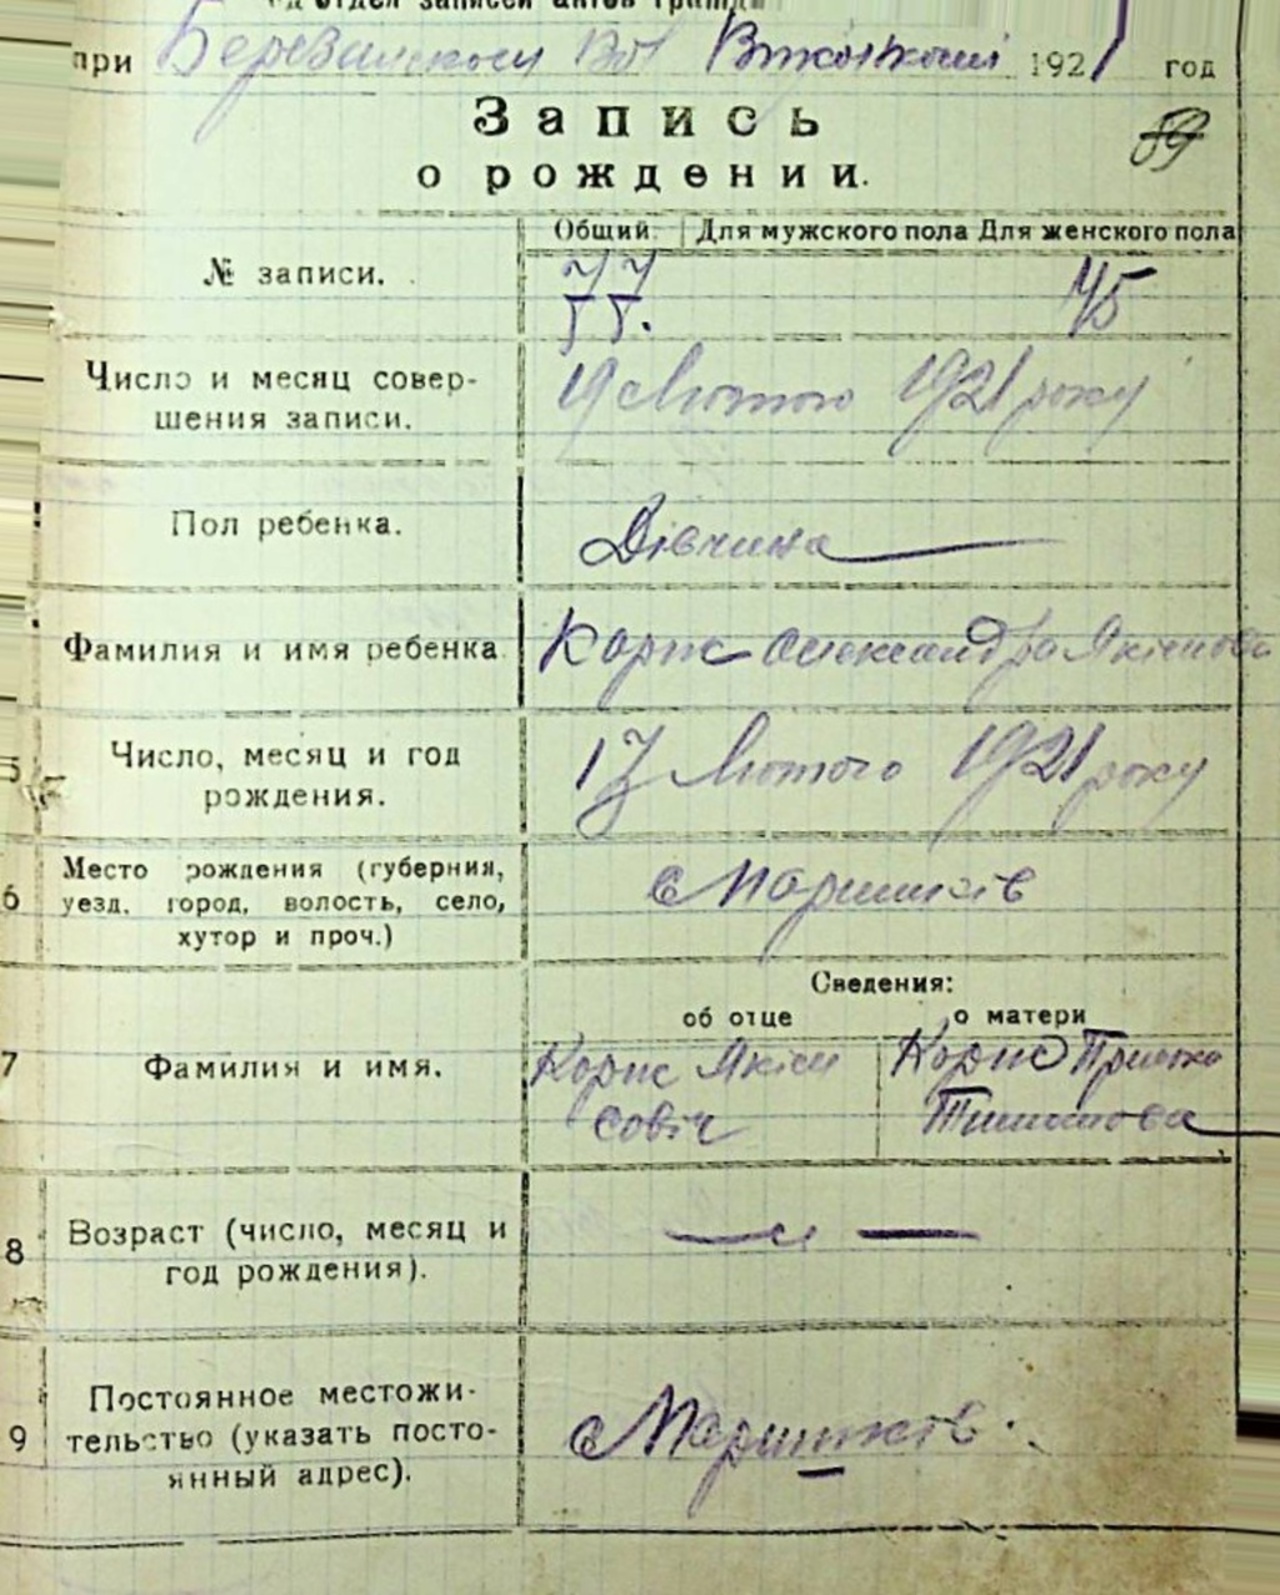 отдел записей актов гражд
при Вол Виконкомі 1921 год
Запись
89
о рождении.
Общий. Для мужского пола Для женского пола
№ записи. 77 45
Число и месяц совер-
шения записи.
19 Лютого 1921 року
Пол ребенка. Дівчина
Фамилия и имя ребенка Корис Олександра Якимова
5 Число, месяц и год
рождения.
17 Лютого 1921 року
6 Место рождения (губерния,
уезд, город, волость, село,
хутор и проч.)
с Маринків
Сведения:
об отце о матери
7 Фамилия и имя. Корис Яким Корис
8 Возраст (число, месяц и
год рождения).
9 Постоянное местожи-
тельство (указать посто-
янный адрес).
с Маринків.